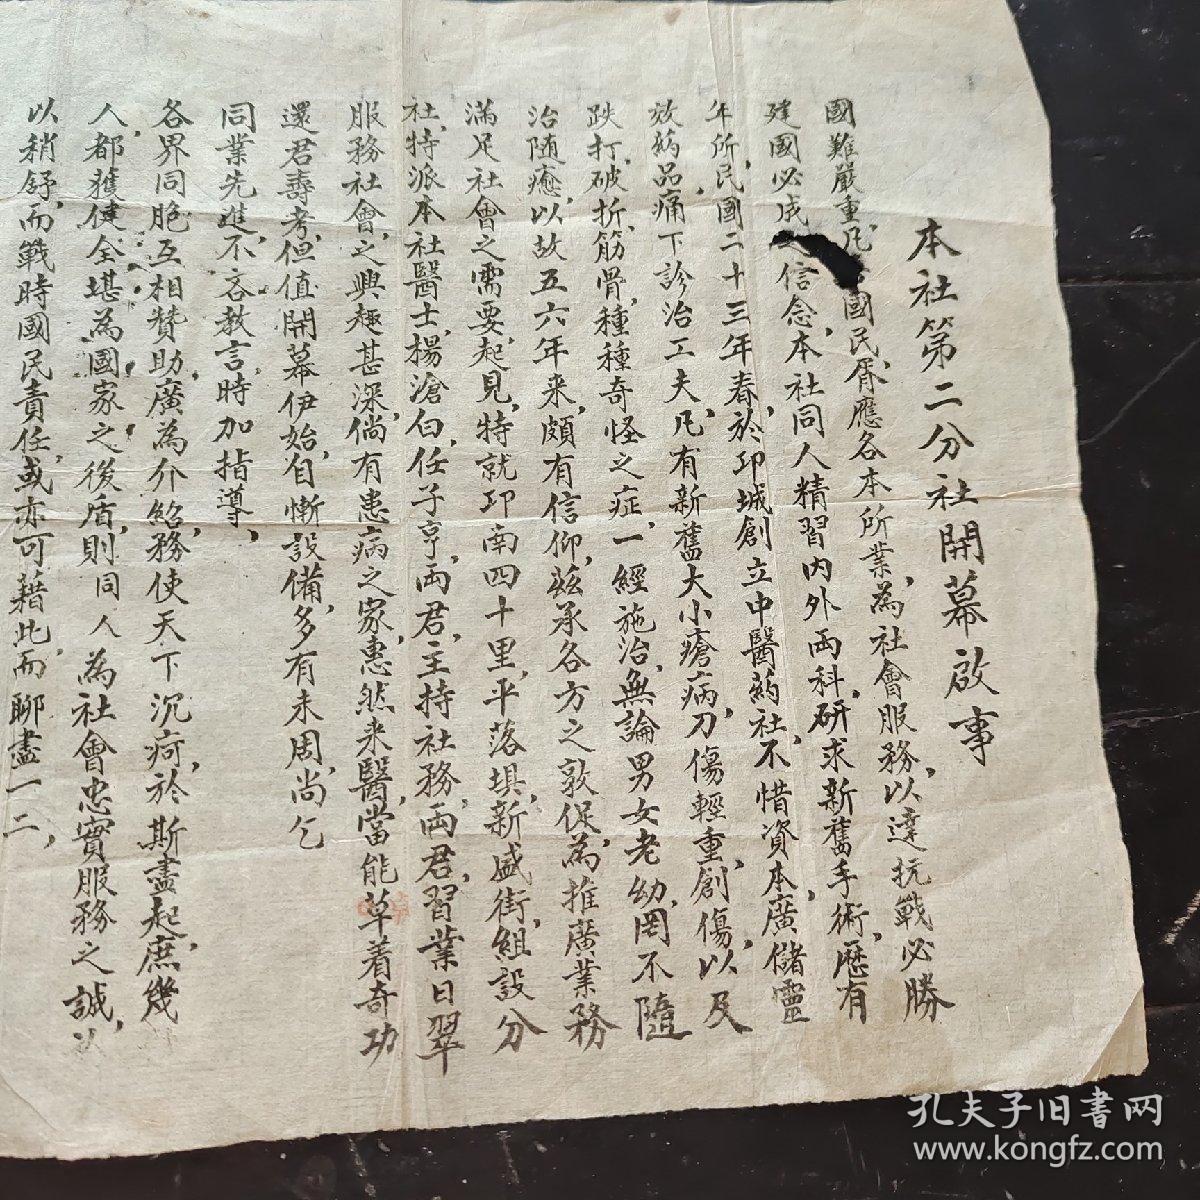 本社第二分社開幕啟事
國難嚴重，凡國民，胥應各本所業，為社會服務，以達抗戰必勝
建國必成信念，本社同人精習內外兩科，研求新舊手術，歷有
年所，民國二十三年春，於邛城創立中醫藥社，不惜資本，廣儲靈
效藥品，痛下診治工夫，凡有新舊大小瘡病，刀傷輕重，創傷，以及
跌打，破折，筋骨，種種奇怪之症，一經施治，無論男女老幼，罔不隨
治随癒，以故五六年来，頗有信仰，茲承各方之敦促，為推廣業務
滿足社會之需要，起見，特就邛南四十里，平落垻，新盛街，組設分
社，特派本社醫士，楊滄白，任子亨，兩君，主持社務，兩君，習業日翠
服務社會，之，興趣甚深，倘有患病之家，惠然来醫，當能早着奇功
還君壽考，但值開幕伊始，自慚設備，多有未周，尚乞
同業先進，不吝教言，時加指導，
各界同胞，互相贊助，廣為介紹，務使天下沉疴，於斯盡起，庶幾
人，都獲健全，堪為國家之後盾，則同人為社會忠實服務之誠，以
以稍舒，而戰時國民責任，或亦可藉此，而聊盡一二，
孔夫子旧書网
www.kongfz.com